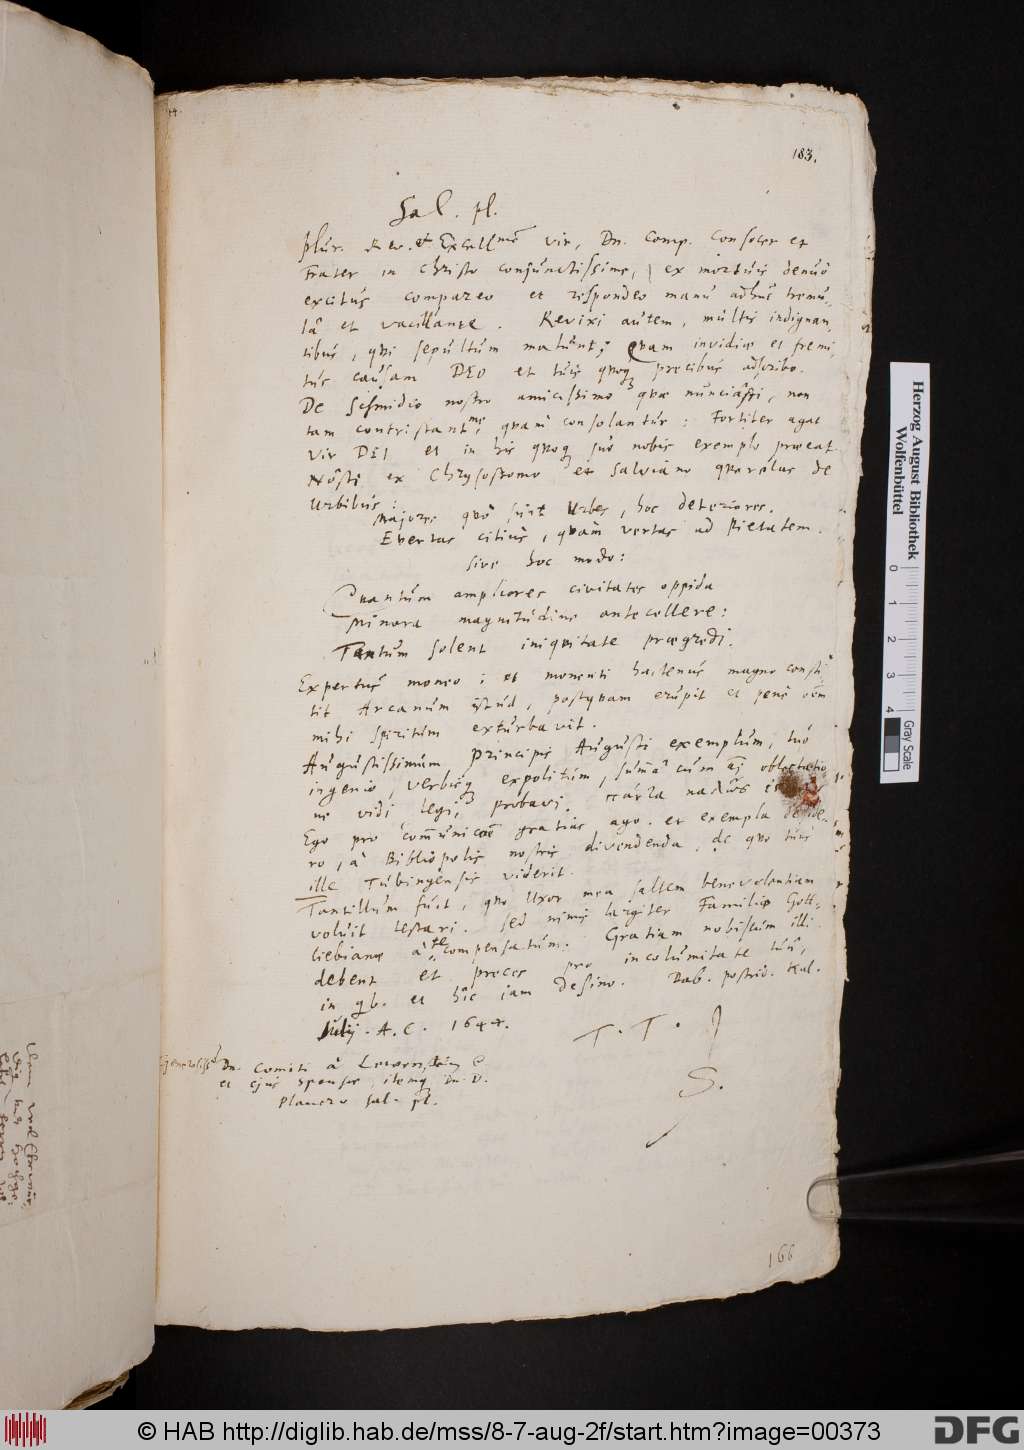 183.
Sal. pl.
plur. Rev. et Excellme vir, Dn. Comp. Consocer et
Frater in Christo conjunctissime, ex mortuis denuò
excitus compareo et respondeo manu adhuc tremu-
lâ et vacillante. Revixi autem, multis indignan-
tibus, qui sepultum malunt; quam invidiae et fremi-
tus causam DEO et tuis quoq precibus adscribo.
De Schmidio nostro amicissimo quae nunciasti, non
tam contristant me, quàm consolantur: Fortiter agat
vir DEI et in his quoq suo nobis exemplo praeeat.
Nosti ex Chrysostomo et Salviano querelas de
Urbibus:
Majores quò sunt Urbes, hoc deteriores.
Evertas citiùs, quàm vertas ad Pietatem.
sive hoc modo:
Quantum ampliores civitates oppida
Minora magnitudine antecellere:
Tantum solent iniquitate praegredi.
Expertus moneo: et monenti hactenus magno consti-
tit Arcanum istud, postquam erupit et penè oem
mihi spiritum exturbavit.
Augustissimum Principis Augusti exemplum, tuo
ingenio, verbisq expolitum, summâ cum oblectatio-
ne vidi, legi, probavi.
Ego pro communicatione gratias ago. et exempla deside-
ro, à Bibliopolis nostris divendenda, de quo tuus
ille Tubingensis viderit.
Tantillum fuit, quo Uxor mea saltem benevolentiam
voluit testari. sed nimis largiter Familiae Gott-
liebianae à te compensatum. Gratiam nobiscum illi
debent et preces pro incolumitate tuâ,
in qb. et hic iam desino. Dab. postrid. Kal.
Julij. A. C. 1644.
T. T.
S.
Generosiss Dn. Comiti à Lewenstein
et ejus Sponsae, itemq Dn. D.
Planero sal. pl.
166
Herzog August Bibliothek
Wolfenbüttel
0 1 2 3 4
Gray Scale
© HAB http://diglib.hab.de/mss/8-7-aug-2f/start.htm?image=00373
DFG